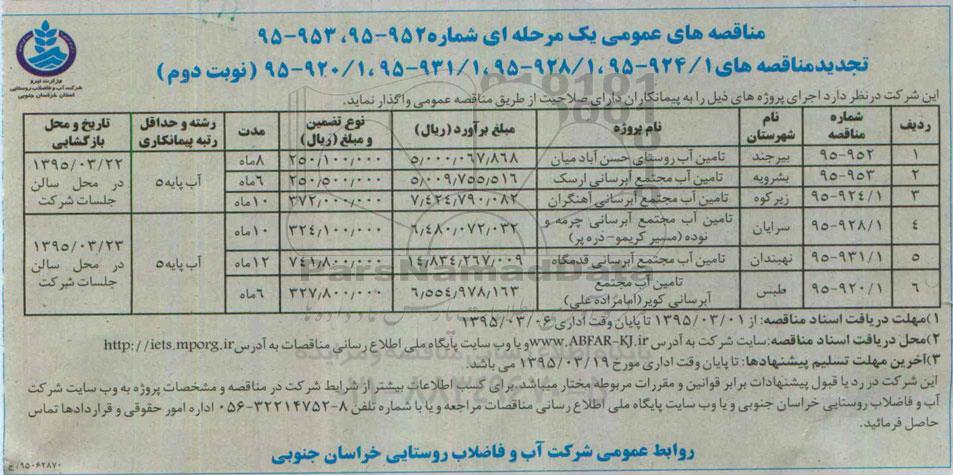 مناقصه های عمومی یک مرحله ای شماره ۹۵۲-۹۵، ۹۵۳-۹۵
تجدیدمناقصه های ۹۲۴/۱-۹۵، ۹۲۸/۱-۹۵، ۹۳۱/۱-۹۵، ۹۲۰/۱-۹۵ (نوبت دوم)
وزارت نیرو
شرکت آب و فاضلاب روستایی
استان خراسان جنوبی
این شرکت در نظر دارد اجرای پروژه های ذیل را به پیمانکاران دارای صلاحیت از طریق مناقصه عمومی واگذار نماید.
ردیف | شماره مناقصه | نام شهرستان | نام پروژه | مبلغ برآورد (ریال) | نوع تضمین و مبلغ (ریال) | مدت | رشته و حداقل رتبه پیمانکاری | تاریخ و محل بازگشایی
۱ | ۹۵-۹۵۲ | بیرجند | تامین آب روستای حسن آباد میان | ۵/۰۰۰/۰۶۷/۸۶۸ | ۲۵۰/۱۰۰/۰۰۰ | ۸ماه | آب پایه۵ | ۱۳۹۵/۰۳/۲۲ در محل سالن جلسات شرکت
۲ | ۹۵-۹۵۳ | بشرویه | تامین آب مجتمع آبرسانی ارسک | ۵/۰۰۹/۷۵۵/۵۱۶ | ۲۵۰/۵۰۰/۰۰۰ | ۶ماه
۳ | ۹۵-۹۲۴/۱ | زیرکوه | تامین آب مجتمع آبرسانی آهنگران | ۷/۴۲۴/۷۹۰/۰۸۲ | ۳۷۲/۰۰۰/۰۰۰ | ۱۰ماه
۴ | ۹۵-۹۲۸/۱ | سرایان | تامین آب مجتمع آبرسانی چرمه و نوده (مسیر کریمو-دره پر) | ۶/۴۸۰/۰۷۲/۰۳۲ | ۳۲۴/۱۰۰/۰۰۰ | ۱۰ماه | آب پایه۵ | ۱۳۹۵/۰۳/۲۳ در محل سالن جلسات شرکت
۵ | ۹۵-۹۳۱/۱ | نهبندان | تامین آب مجتمع آبرسانی قدمگاه | ۱۴/۸۳۴/۲۶۷/۰۰۹ | ۷۴۱/۸۰۰/۰۰۰ | ۱۲ماه
۶ | ۹۵-۹۲۰/۱ | طبس | تامین آب مجتمع آبرسانی کویر(امامزاده علی) | ۶/۵۵۴/۹۷۸/۱۶۳ | ۳۲۷/۸۰۰/۰۰۰ | ۶ماه
ParsNamadData
۱)مهلت دریافت اسناد مناقصه: از ۱۳۹۵/۰۳/۰۱ تا پایان وقت اداری ۱۳۹۵/۰۳/۰۶
۲)محل دریافت اسناد مناقصه:سایت شرکت به آدرس www.ABFAR-KJ.ir و یا وب سایت پایگاه ملی اطلاع رسانی مناقصات به آدرس http://iets.mporg.ir
۳)آخرین مهلت تسلیم پیشنهادها: تا پایان وقت اداری مورخ ۱۳۹۵/۰۳/۱۹ می باشد.
این شرکت در رد یا قبول پیشنهادات برابر قوانین و مقررات مربوطه مختار میباشد. برای کسب اطلاعات بیشتر از شرایط شرکت در مناقصه و مشخصات پروژه به وب سایت شرکت
آب و فاضلاب روستایی خراسان جنوبی و یا وب سایت پایگاه ملی اطلاع رسانی مناقصات مراجعه و یا با شماره تلفن ۸-۳۲۲۱۴۷۵۲-۰۵۶ اداره امور حقوقی و قراردادها تماس
حاصل فرمائید.
روابط عمومی شرکت آب و فاضلاب روستایی خراسان جنوبی
۹۵۰۶۲۸۷۰/ج